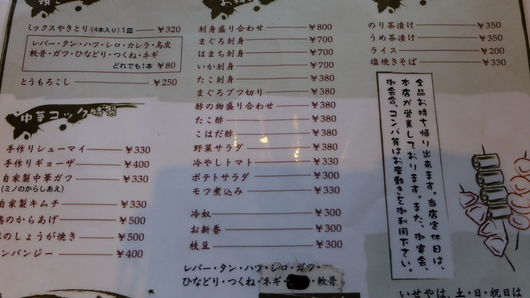 ミックスやきとり(4本入り)1皿 ¥320
レバー・タン・ハツ・シロ・カシラ・鳥皮
軟骨・ガツ・ひなどり・つくね・ネギ
どれでも1本 ¥80
とうもろこし ¥250
中華コック特製
手作りシューマイ ¥330
手作りギョーザ ¥400
自家製中華ガツ ¥330
(ミノのからしあえ)
自家製キムチ ¥330
のからあげ ¥500
のしょうが焼き ¥500
ンバンジー ¥400
刺身盛り合わせ ¥800
まぐろ刺身 ¥380
はまち刺身 ¥380
いか刺身 ¥380
たこ刺身 ¥380
まぐろブツ切り ¥380
酢の物盛り合わせ ¥380
たこ酢 ¥380
こはだ酢 ¥380
野菜サラダ ¥380
冷やしトマト ¥330
ポテトサラダ ¥330
モツ煮込み ¥330
冷奴 ¥300
お新香 ¥300
枝豆 ¥300
レバー・タン・ハツ・シロ・ガツ・
ひなどり・つくね・ネギ 軟骨
のり茶漬け ¥350
うめ茶漬け ¥350
ライス ¥200
塩焼きそば ¥330
全品お持ち帰り出来ます。当店定休日は、
本店が営業しております。また、御宴会、
御会合、コンパ等はお座敷をご利用下さい。
いせやは、土・日・祝日は